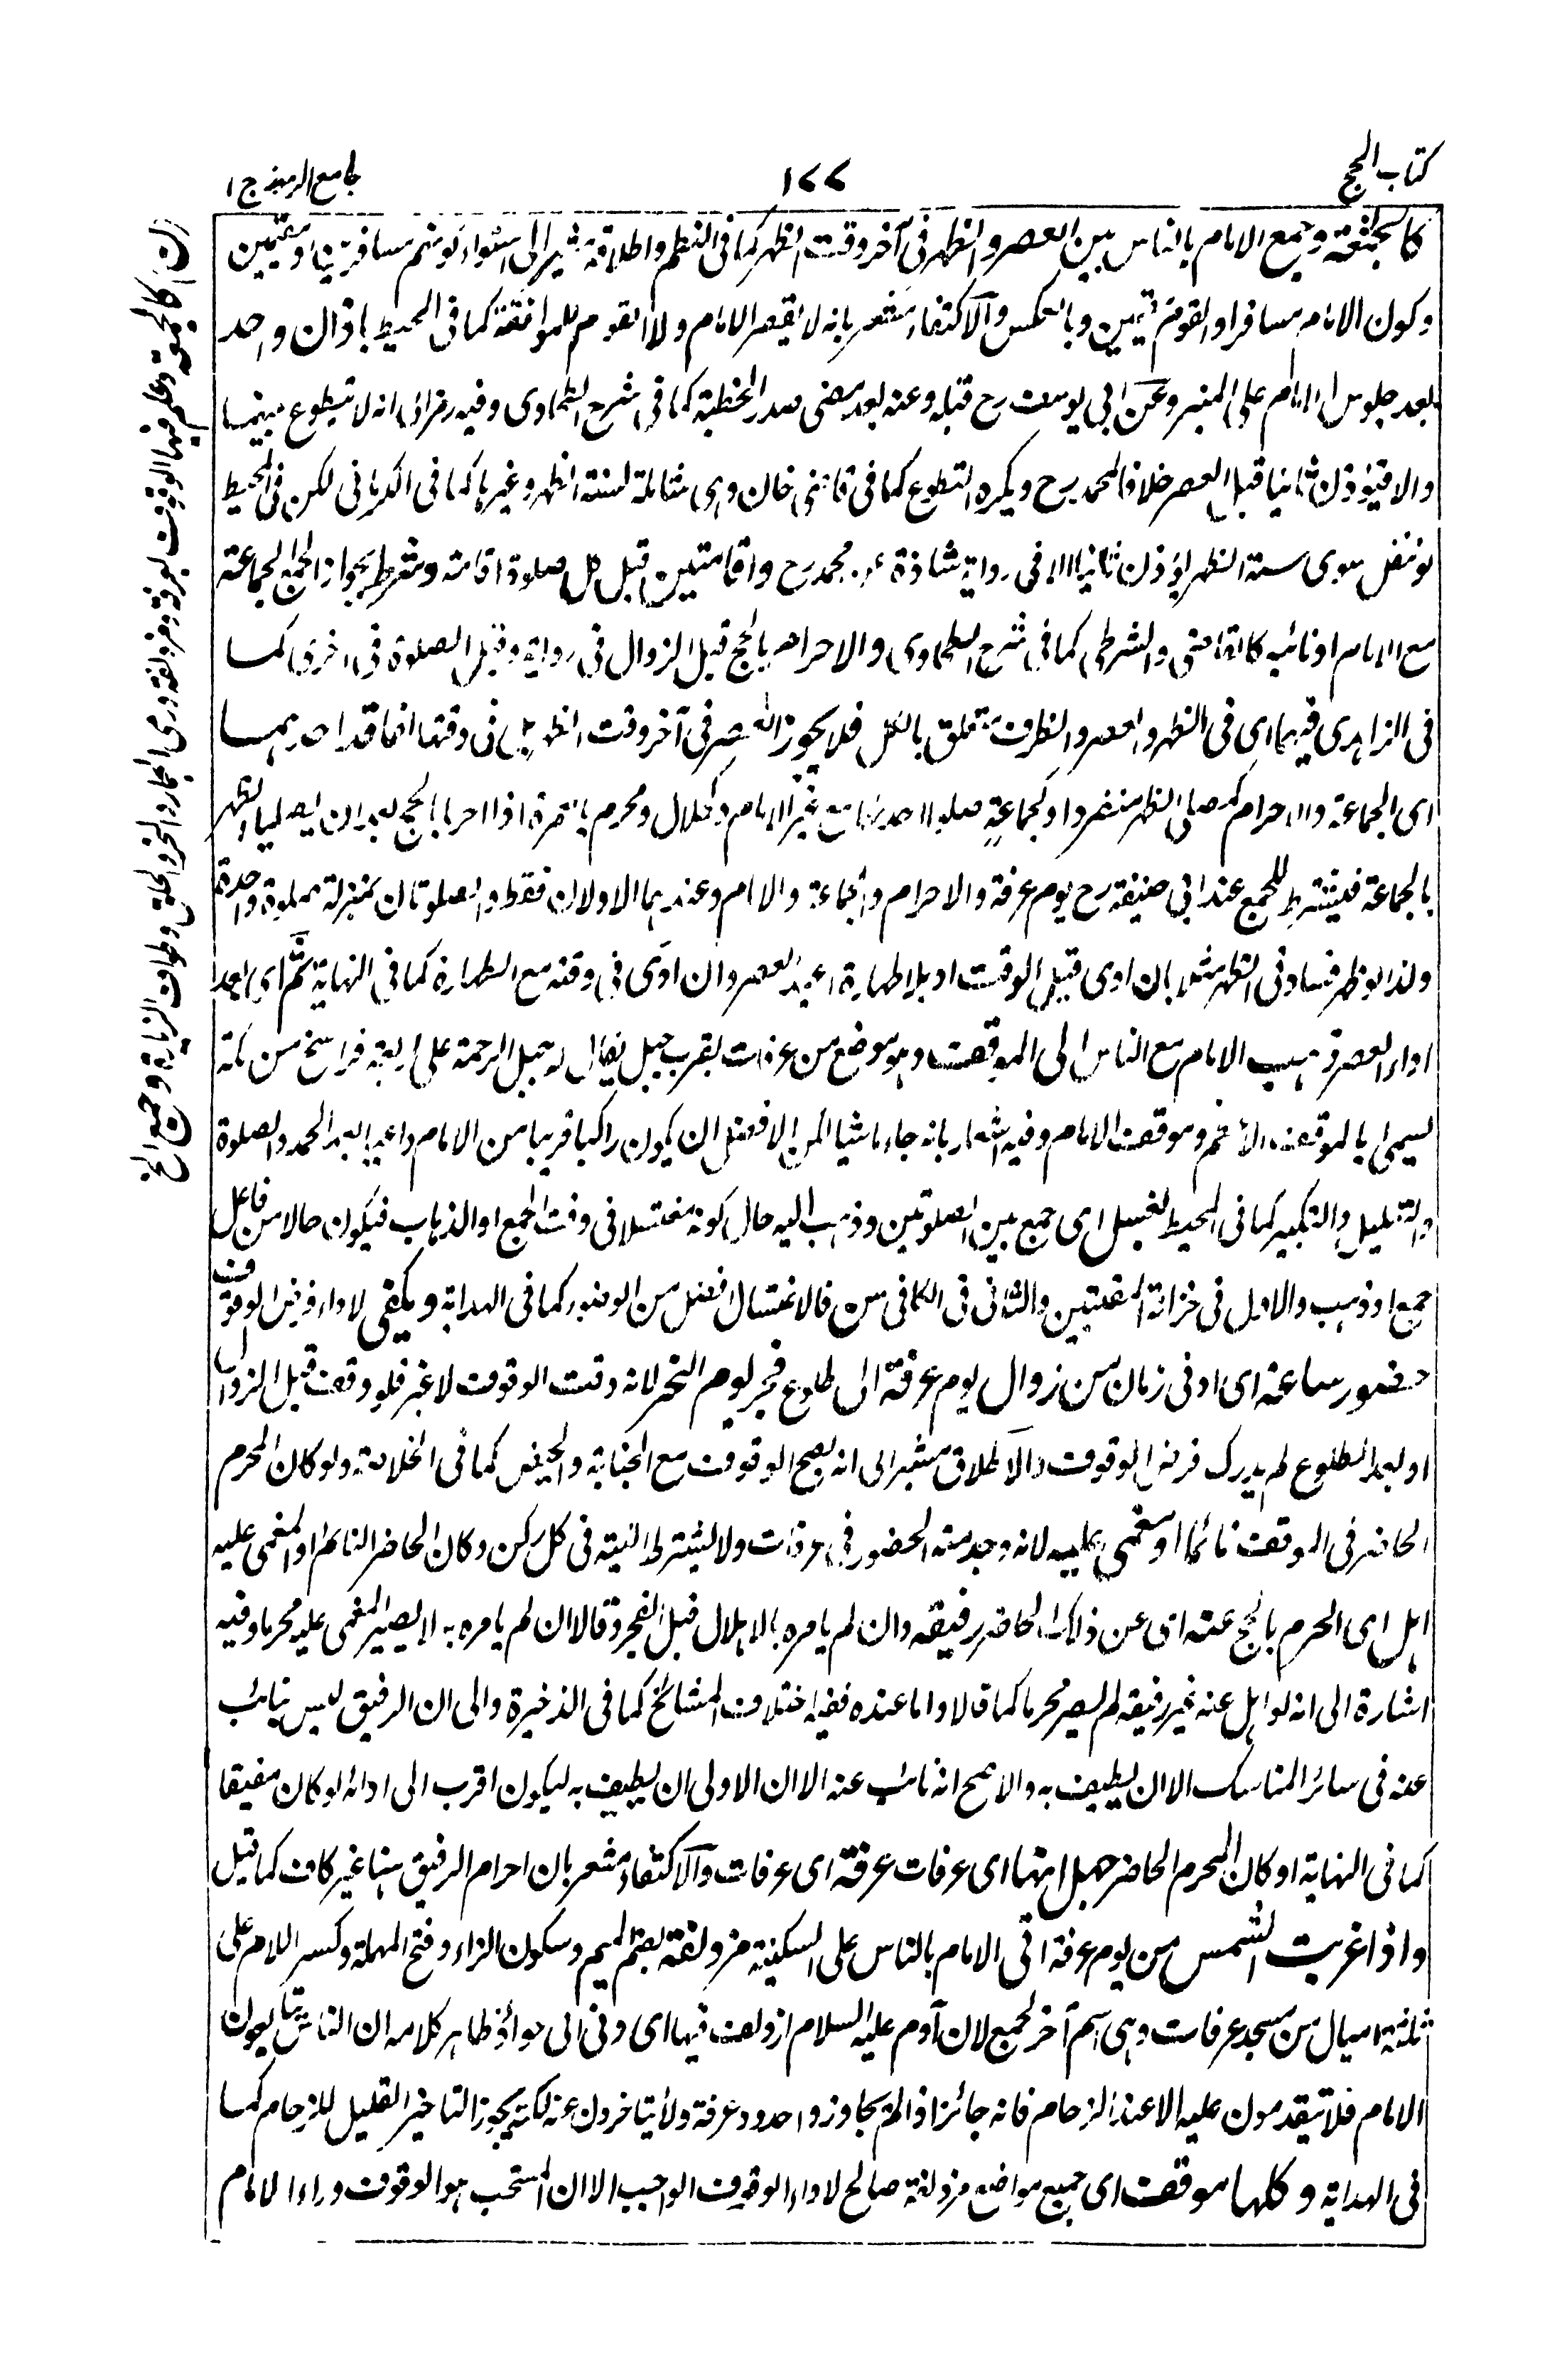 كتاب الحج
١٧٧
جامع الرموز ج ١
كالجمعة وجمع الامام بالناس بين العصر والظهر فى آخر وقت الظهر كما فى النظم واطلاقه مشير الى استواء كونهم مسافرين او مقيمين
وكون الامام مسافرا والقوم مقيمين وبالعكس والاكتفاء مشعر بانه لا يقصر الامام ولا القوم للموافقة كما فى المحيط باذان واحد
بعد جلوس الامام على المنبر وعن ابى يوسف رح قبله وعنه بعد مضى صدر الخطبة كما فى شرح الطحاوى وفيه رمز الى انه لا يتطوع بينهما
والا فيؤذن ثانيا قبل العصر خلافا لمحمد رح ويكره التطوع كما فى قاضى خان وهى شاملة لسنة الظهر وغيرها كما فى الكرمانى لكن فى المحيط
لو تنفل سوى سنة الظهر يؤذن ثانيا الا فى رواية شاذة عن محمد رح واقامتين قبل كل صلوة اقامة وشرط لجواز الجمع الجماعة
مع الامام او نائبه كالقاضى والشرطى كما فى شرح الطحاوى والاحرام بالحج قبل الزوال فى رواية وقبل الصلوة فى اخرى كما
فى الزاهدى فيهما اى فى الظهر والعصر والظرف متعلق بالكل فلا يجوز العصر فى آخر وقت الظهر بل فى وقتها انما قد احدهما
اى الجماعة والاحرام كمن صلى الظهر منفردا وكجماعة صلوا احدهما مع غير الامام وكحلال ومحرم بالعمرة اذا احرما بالحج بعد ان يصليا الظهر
بالجماعة فيشترط للجمع عند ابى حنيفة رح يوم عرفة والاحرام والجماعة والامام وعندهما الاولان فقط والصلوتان بمنزلة صلوة واحدة
ولذا لو ظهر فساد فى الظهر مثلا بان ادى قبل الوقت او بلا طهارة اعيد العصر وان ادى فى وقته مع الطهارة كما فى النهاية ثم اى بعد
اداء العصر ذهب الامام مع الناس الى الموقف وهو موضع من عرفات بقرب جبل يقال له جبل الرحمة على اربعة فراسخ من مكة
يسمى بالموقف الاعظم وموقف الامام وفيه اشعار بانه جاء ماشيا لكن الافضل ان يكون راكبا قريبا من الامام داعيا بعد الحمد والصلوة
والتهليل والتكبير كما فى المحيط بغسل اى جمع بين الصلوتين وذهب اليه حال كونه مغتسلا فى وقت الجمع او الذهاب فيكون حالا من فاعل
جمع او ذهب والاول فى خزانة المفتيين والثانى فى الكافى سن فالاغتسال افضل من الوضوء كما فى الهداية ويكفى لاداء فرض الوقوف
حضور ساعة اى ادنى زمان من زوال يوم عرفة الى طلوع فجر يوم النحر لانه وقت الوقوف لا غير فلو وقف قبل الزوال
او بعد الطلوع لم يدرك فرض الوقوف والاطلاق مشير الى انه يصح الوقوف مع الجنابة والحيض كما فى الخلاصة ولو كان المحرم
الحاضر فى الموقف نائما او مغمى عليه لانه وجد منه الحضور فى عرفات ولا يشترط النية فى كل ركن وكان الحاضر النائم او المغمى عليه
اهل اى احرم بالحج عنه اى عن ذلك الحاضر رفيقه وان لم يامره بالاهلال قبل الفجر وقالا ان لم يامره به لا يصير المغمى عليه محرما وفيه
اشارة الى انه لو اهل عنه غير رفيقه لم يصير محرما كما قالا واما عنده ففيه اختلاف المشائخ كما فى الذخيرة والى ان الرفيق ليس بنائب
عنه فى سائر المناسك الا ان يطيف به والاصح انه نائب عنه الا ان الاولى ان يطيف به ليكون اقرب الى ادائه لو كان مفيقا
كما فى النهاية او كان المحرم الحاضر جهل انها اى عرفات عرفة اى عرفات والاكتفاء مشعر بان احرام الرفيق ههنا غير كاف كما قيل
واذا غربت الشمس من يوم عرفة اتى الامام بالناس على السكينة مزدلفة بضم الميم وسكون الزاء وفتح المهملة وكسر اللام على
ثلثة اميال من مسجد عرفات وهى اسم آخر لجمع لان آدم عليه السلام ازدلف فيها اى دنى الى حواء وظاهر كلامه ان الناس يتابعون
الامام فلا يتقدمون عليه الا عند الزحام فانه جائز اذا لم يجاوزوا حدود عرفة ولا يتاخرون عنه لكنه يجوز التاخير القليل للزحام كما
فى الهداية وكلها موقف اى جميع مواضع مزدلفة صالح لاداء الوقوف الواجب الا ان المستحب هو الوقوف وراء الامام
كالجمعة وعلم فيها الوقوف بعرفة ومزدلفة ورمى الجمار والنحر والحلق وطواف الزيارة وجمع الخ